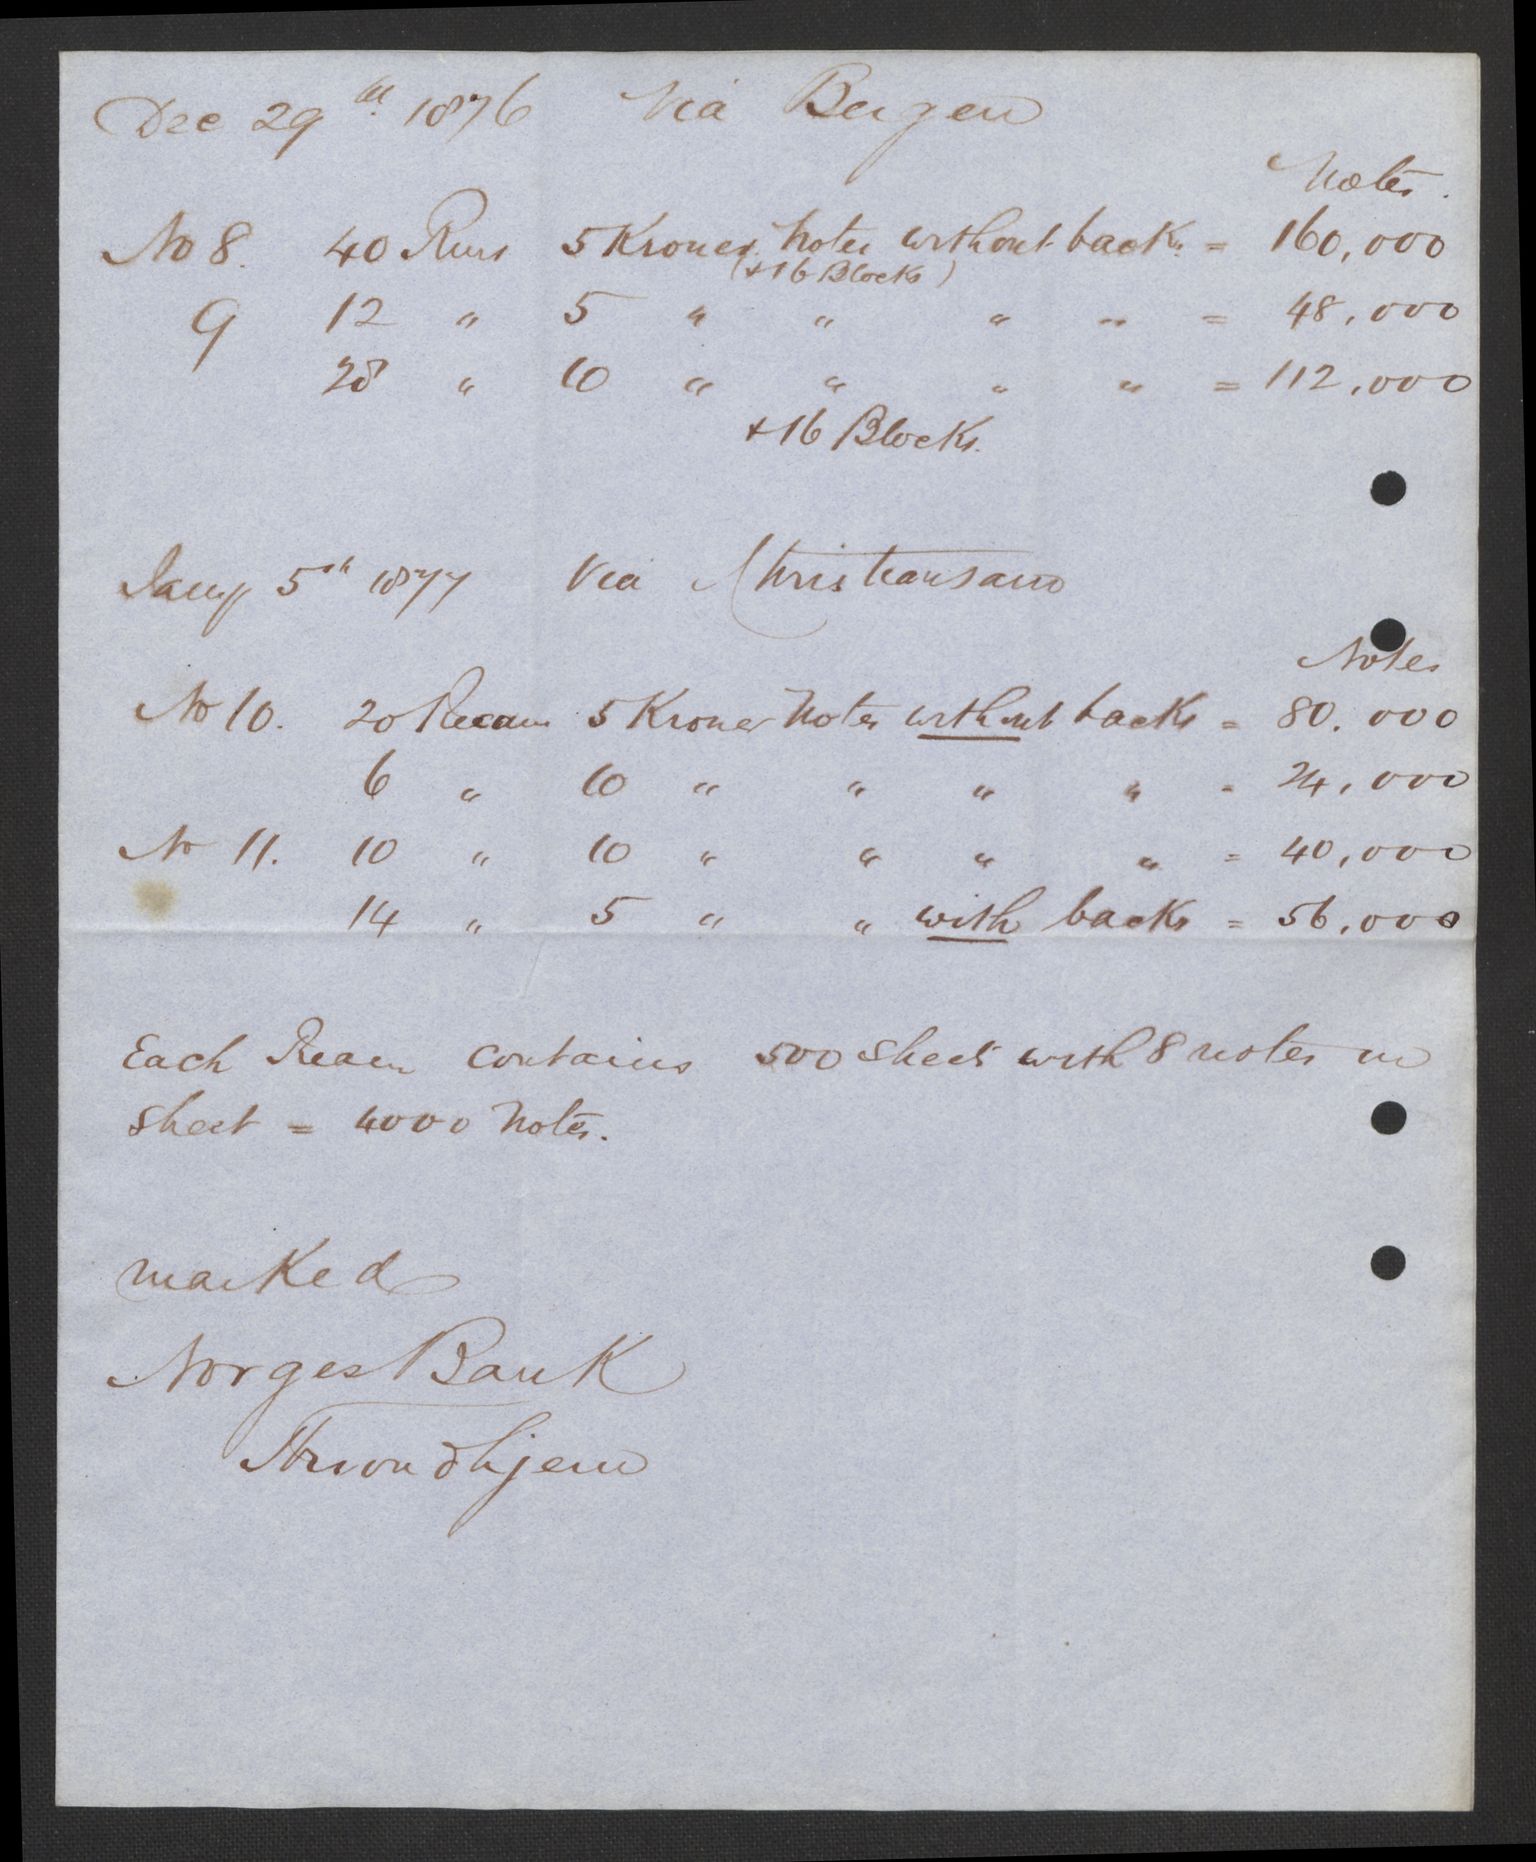 Dec 29th 1876 Via Bergen
Notes.
No 8. 40 Rms 5 Kroner Notes without backs = 160,000
(+16 Blocks)
9 12 " 5 " " " " = 48,000
28 " 10 " " " " = 112,000
+16 Blocks.
Jany 5th 1877 Via Christiansand
Notes
No 10. 20 Ream 5 Kroner Notes without backs = 80.000
6 " 10 " " " " = 24,000
No 11. 10 " 10 " " " " = 40,000
14 " 5 " " with backs = 56,000
Each Ream contains 500 sheets with 8 notes in
sheet = 4000 Notes.
marked
Norges Bank
Throndhjem